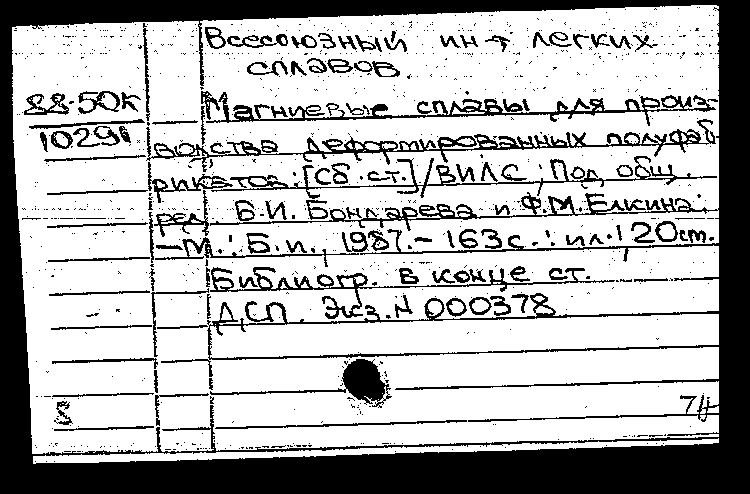 Всесоюзный ин-т легких
сплавов.
88-50к
10291
Магниевые сплавы для произ-
водства деформированных полуфаб-
рикатов: [Сб. ст.] / ВИЛС; Под общ.
ред. Б.И. Бондарева и Ф.М. Елкина.
— М.: Б. и., 1987. - 163 с.: ил.; 20 см.
Библиогр. в конце ст.
ДСП. Экз. N 000378